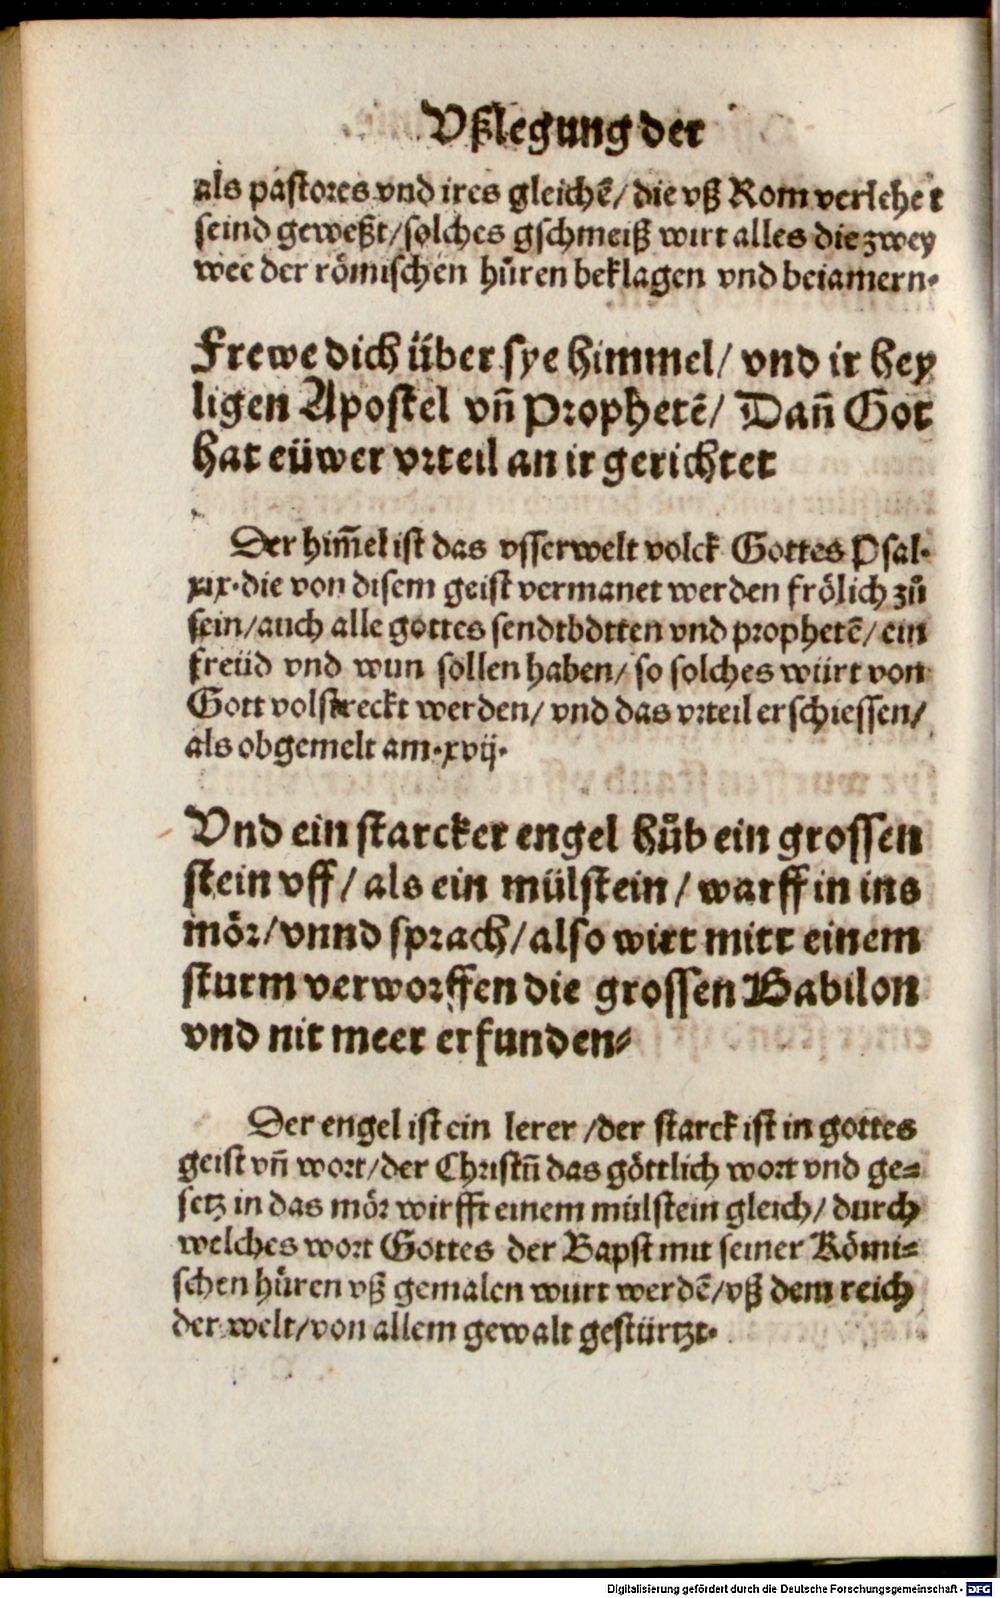 Vßlegung der
als pastores vnd ires gleichē/ die vß Rom verlehet
seind geweßt/solches gschmeiß wirt alles die zwey
wee der römischen hůren beklagen vnd beiamern.
Frewe dich über sye himmel/ vnd ir hey
ligen Apostel vn̄ Prophetē/ Dan̄ Got
hat eüwer vrteil an ir gerichtet
Der him̄el ist das vsserwelt volck Gottes Psal.
xix.die von disem geist vermanet werden frölich zů
sein/auch alle gottes sendtbotten vnd prophetē/ ein
freüd vnd wun sollen haben/ so solches würt von
Gott volstreckt werden/ vnd das vrteil erschiessen/
als obgemelt am.xvij.
Vnd ein starcker engel hůb ein grossen
stein vff/ als ein mülstein/ warff in ins
mör/vnnd sprach/also wirt mitt einem
sturm verworffen die grossen Babilon
vnd nit meer erfunden.
Der engel ist ein lerer/der starck ist in gottes
geist vn̄ wort/der Christū das göttlich wort vnd ge⸗
setz in das mör wirfft einem mülstein gleich/ durch
welches wort Gottes der Bapst mit seiner Römi⸗
schen hůren vß gemalen wurt werdē/vß dem reich
der welt/von allem gewalt gestürtzt.
Digitalisierung gefördert durch die Deutsche Forschungsgemeinschaft - DFG